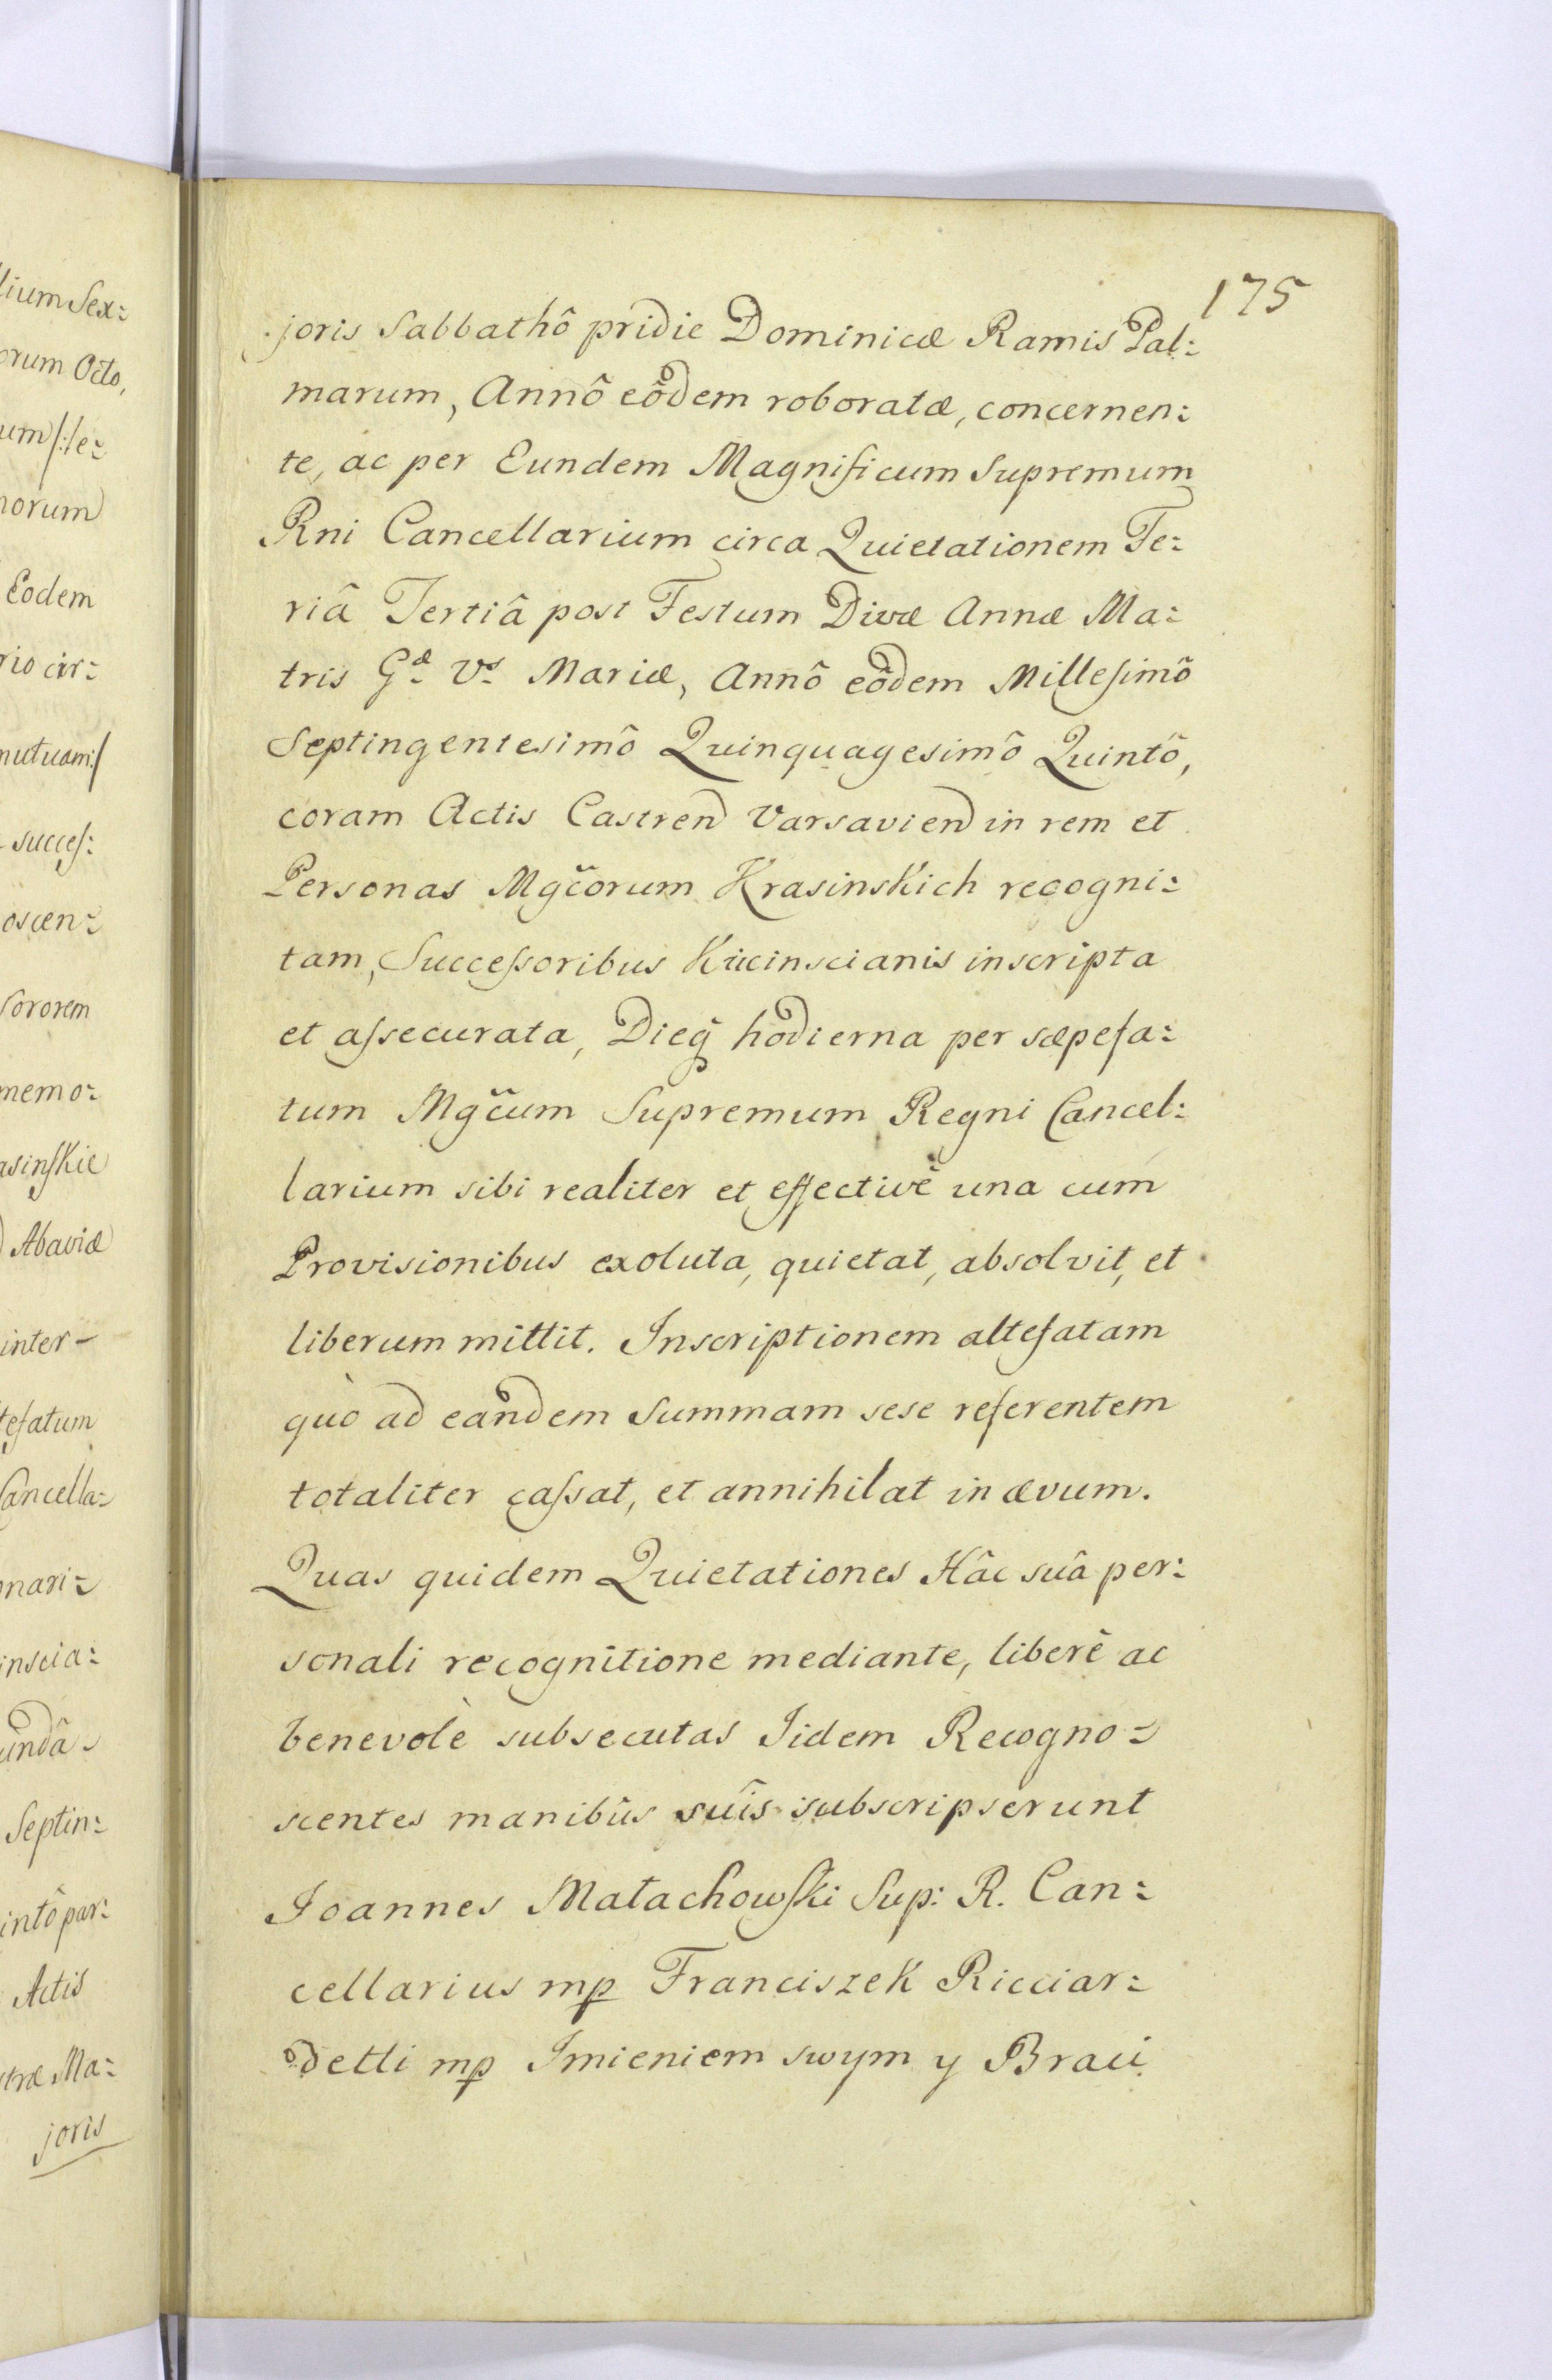 lium Sex:
orum Octo,
um/:/e:
norum
Eodem
rio cir:
mutuam:/
succes:
oscen:
Sororem
memo:
asinskie
Abaviæ
inter-
tefatum
Cancella:
nari:
inscia:
undâ
Septin:
intô par:
Actis
træ Ma:
joris
175
joris Sabbathô pridie Dominicæ Ramis Pal:
marum, Annô eôdem roboratæ, concernen:
te, ac per Eundem Magnificum Supremum
Rni Cancellarium circa Quietationem Fe:
riâ Tertiâ post Festum Divæ Annæ Ma:
tris Gæ Vs Mariæ, Annô eôdem Millesimô
Septingentesimô Quinquagesimô Quintô,
coram Actis Castrend Varsaviend in rem et
Personas Mgcorum Krasinskich recogni:
tam, Successoribus Kucinscianis inscripta
et assecurata, Dieq hodierna per sæpefa:
tum Mgcum Supremum Regni Cancel:
larium sibi realiter et effectivè una cum
Provisionibus exoluta, quietat, absolvit, et
liberum mittit. Inscriptionem altefatam
quò ad eandem Summam sese referentem
totaliter cassat, et annihilat in ævum.
Quas quidem Quietationes Hâc suâ per:
sonali recognitione mediante, liberè ac
benevolè subsecutas Iidem Recogno:
scentes manibus suis subscripserunt
Joannes Małachowski Sup: R. Can:
cellarius mp Franciszek Ricciar:
detti mp Imieniem swym y Braci